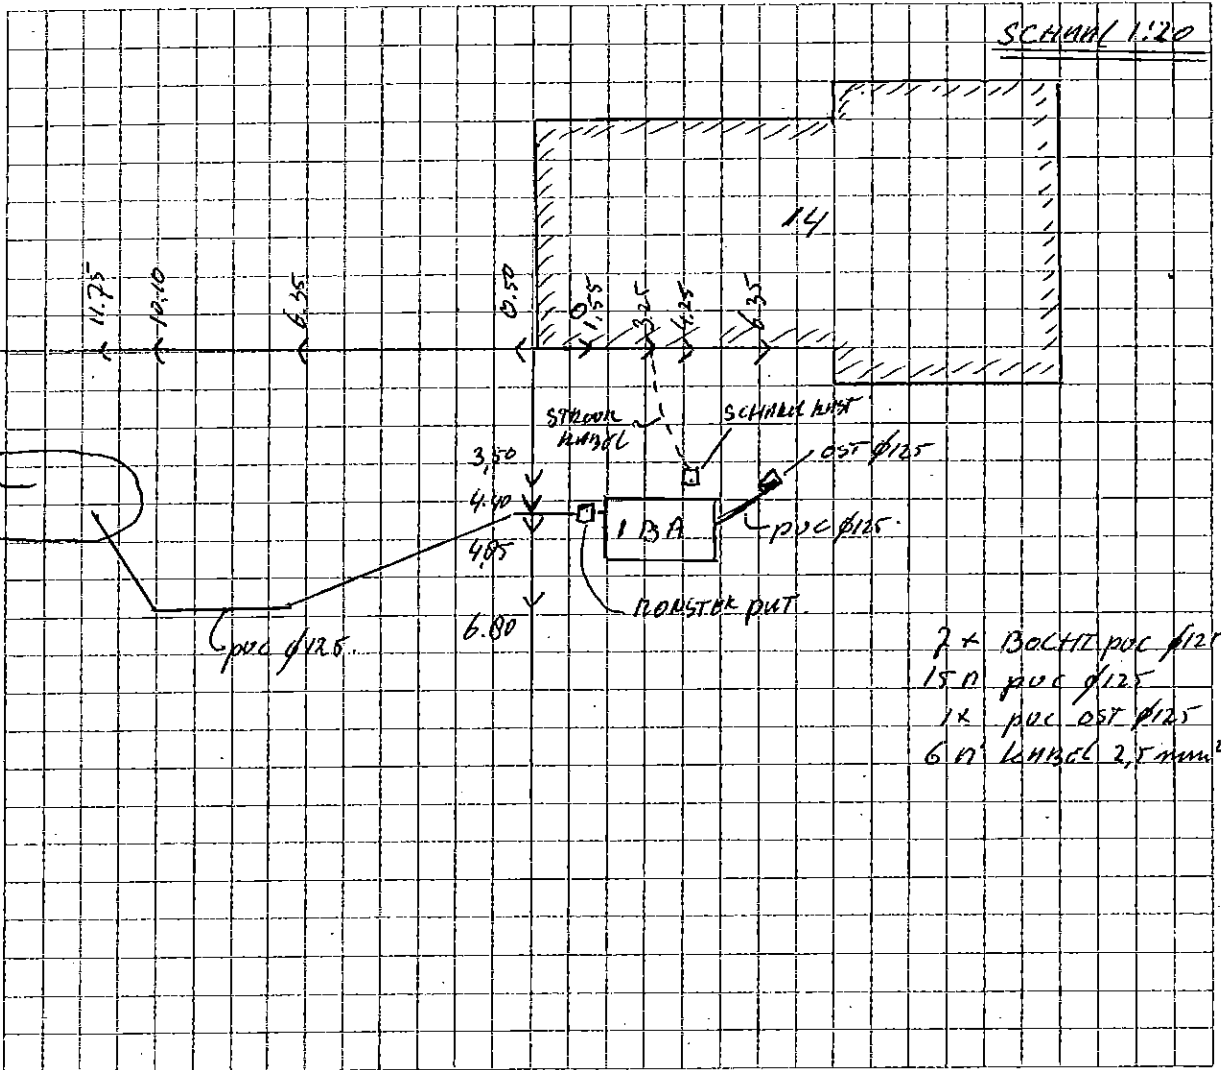 SCHAAL 1:20
14
11.75
10.10
6.35
0.50
0
1,55
3.25
4.25
6.35
STROOM
KABEL
SCHAKEL KAST
3,50
4.40
4,85
6.80
OST ø125
IBA
pvc ø125.
MONSTER PUT.
pvc ø125.
7 x BOCHT pvc ø125
15 M pvc ø125
1x pvc OST ø125
6 M KABEL 2,5 mm²